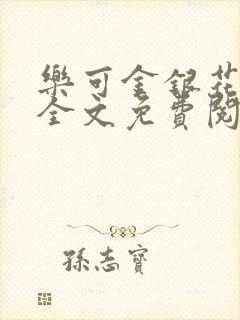 樂可金銀花
全文免費閱
孫志寶